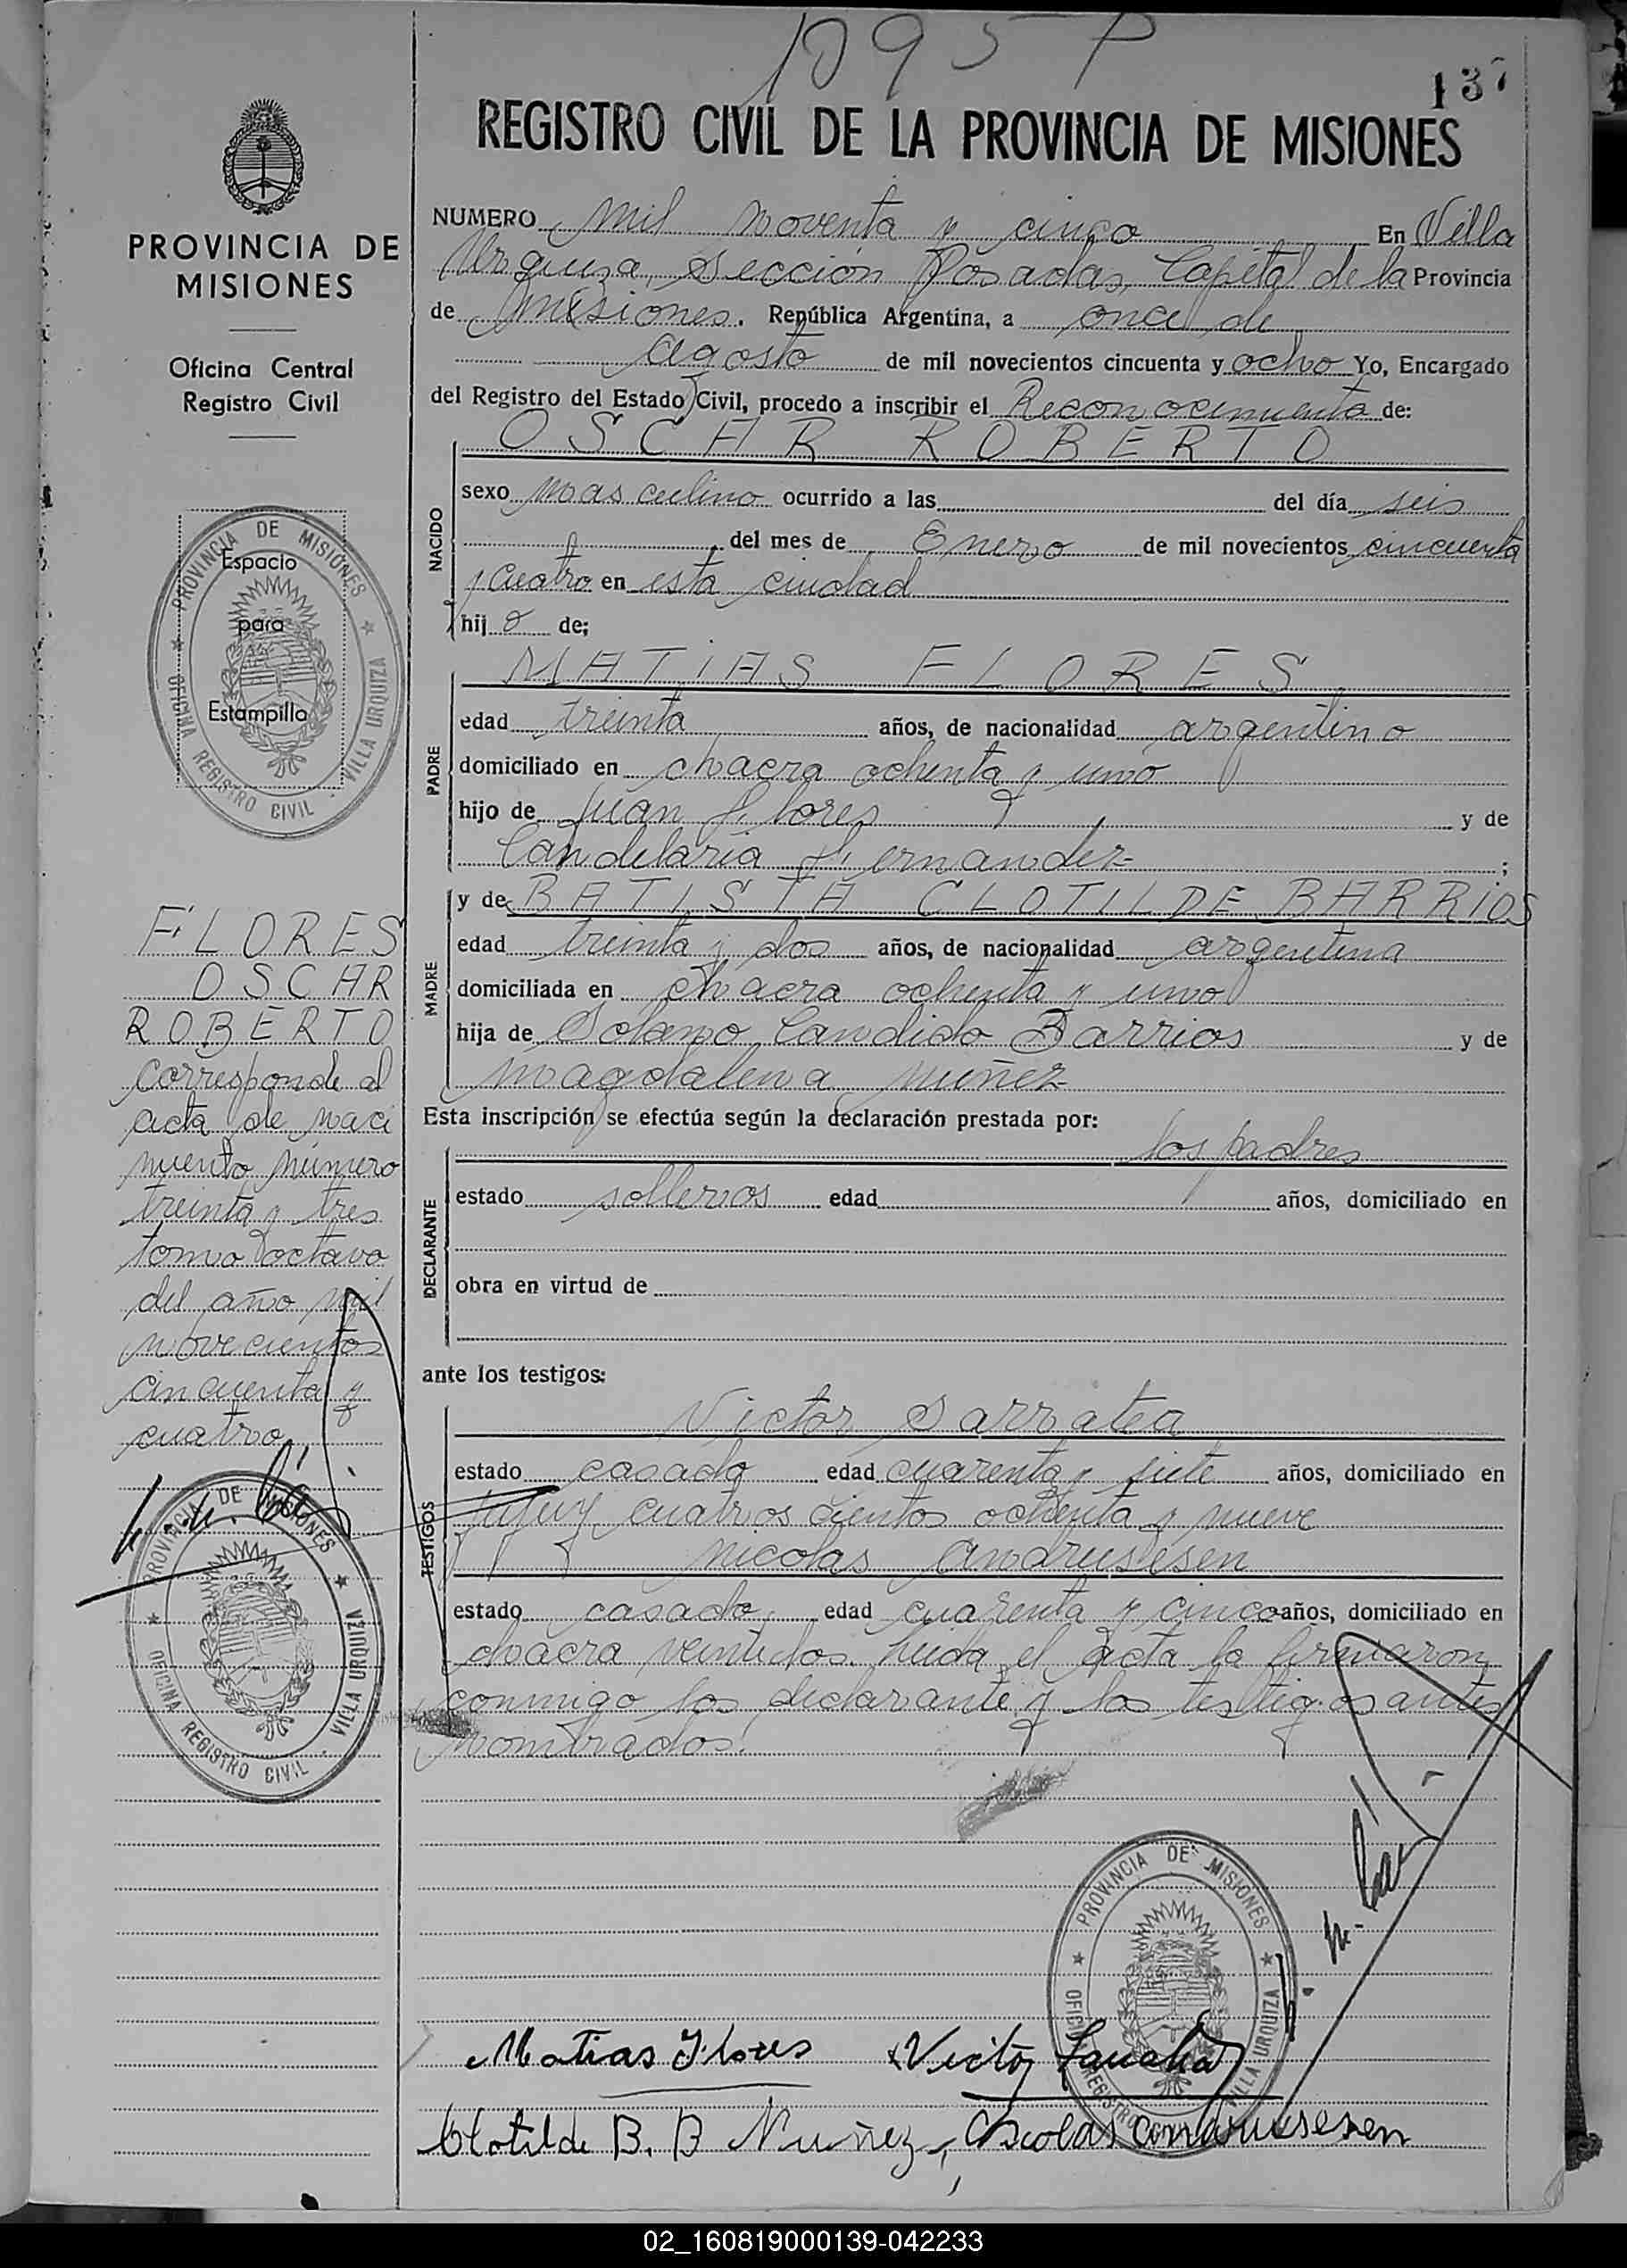 1095 P
137
REGISTRO CIVIL DE LA PROVINCIA DE MISIONES
PROVINCIA DE
MISIONES
Oficina Central
Registro Civil
PROVINCIA DE MISIONES
OFICINA REGISTRO CIVIL - VILLA URQUIZA
Espacio
para
Estampilla
FLORES
OSCAR
ROBERTO
corresponde al
acta de naci
miento número
treinta y tres
tomo octavo
del año mil
novecientos
cincuenta y
cuatro
PROVINCIA DE MISIONES
OFICINA REGISTRO CIVIL - VILLA URQUIZA
NUMERO mil noventa y cinco En Villa
Urquiza, Sección Posadas, Capital de la Provincia
de Misiones. República Argentina, a once de
agosto de mil novecientos cincuenta y ocho Yo, Encargado
del Registro del Estado Civil, procedo a inscribir el Reconocimiento de:
NACIDO
OSCAR ROBERTO
sexo masculino ocurrido a las del día seis
del mes de Enero de mil novecientos cincuenta
y cuatro en esta ciudad
hij o de;
PADRE
MATIAS FLORES
edad treinta años, de nacionalidad argentino
domiciliado en chacra ochenta y uno
hijo de Juan Flores y de
Candelaria Fernandez ;
MADRE
y de BATISTA CLOTILDE BARRIOS
edad treinta y dos años, de nacionalidad argentina
domiciliada en chacra ochenta y uno
hija de Solano Candido Barrios y de
Magdalena Muñez
Esta inscripción se efectúa según la declaración prestada por:
DECLARANTE
los padres
estado solteros edad años, domiciliado en
obra en virtud de
ante los testigos:
TESTIGOS
Victor Sarratea
estado casado edad cuarenta y siete años, domiciliado en
Jujuy cuatros cientos ochenta y nueve
Nicolas Andrusesen
estado casado, edad cuarenta y cinco años, domiciliado en
chacra veintidos. Leida el acta la firmaron
conmigo los declarante y los testigos antes
nombrados.
PROVINCIA DE MISIONES
OFICINA REGISTRO CIVIL - VILLA URQUIZA
Matias Flores Victor
Clotilde B. B Nuñez,
02_160819000139-042233